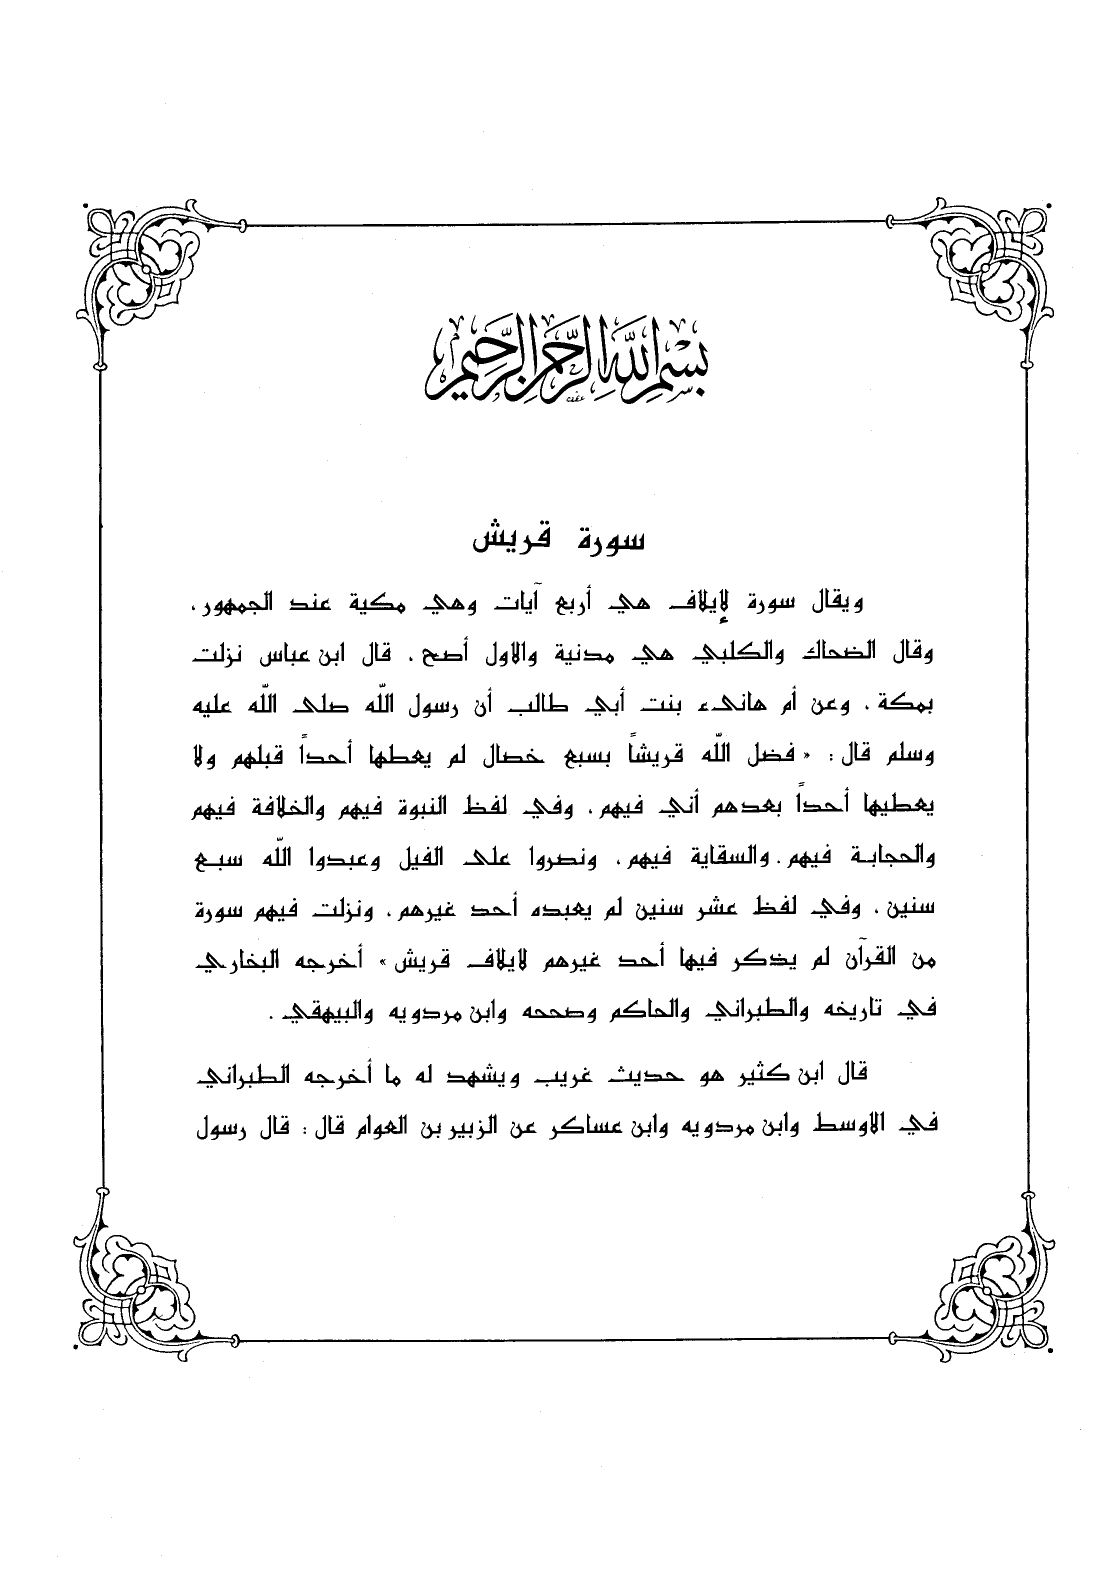 بِسْمِ اللَّهِ الرَّحْمَنِ الرَّحِيمِ
سورة قريش
ويقال سورة لإيلاف هي أربع آيات وهي مكية عند الجمهور،
وقال الضحاك والكلبي هي مدنية والاول أصح، قال ابن عباس نزلت
بمكة، وعن أم هانىء بنت أبي طالب أن رسول الله صلى الله عليه
وسلم قال: « فضل الله قريشاً بسبع خصال لم يعطها أحداً قبلهم ولا
يعطيها أحداً بعدهم أني فيهم، وفي لفظ النبوة فيهم والخلافة فيهم
والحجابة فيهم، والسقاية فيهم، ونصروا على الفيل وعبدوا الله سبع
سنين، وفي لفظ عشر سنين لم يعبده أحد غيرهم، ونزلت فيهم سورة
من القرآن لم يذكر فيها أحد غيرهم لايلاف قريش» أخرجه البخاري
في تاريخه والطبراني والحاكم وصححه وابن مردويه والبيهقي.
قال ابن كثير هو حديث غريب ويشهد له ما أخرجه الطبراني
في الاوسط وابن مردويه وابن عساكر عن الزبير بن العوام قال: قال رسول